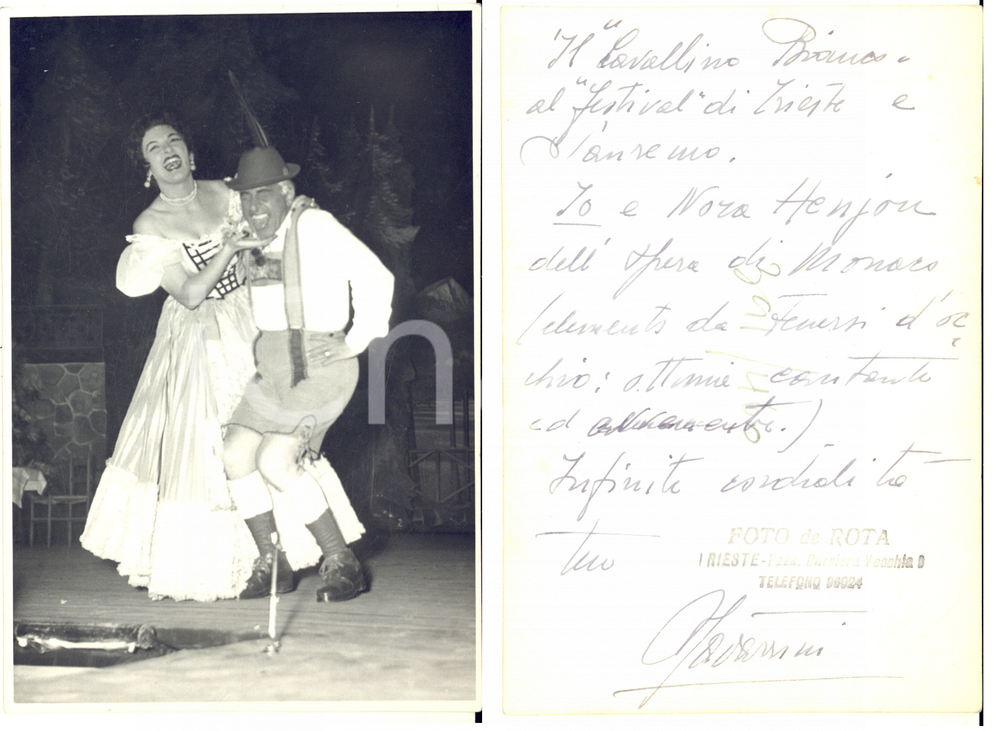 "Il Cavallino Bianco"
al "Festival" di Trieste e
Sanremo.
Io e Nora Henjon
dell'Opera di Monaco
(elemento da tenersi d'oc
chio: ottime cantante
ed
Infinite cordialità
tuo
FOTO de ROTA
TRIESTE - P.zza Barriera Vecchia 9
TELEFONO 96024
on